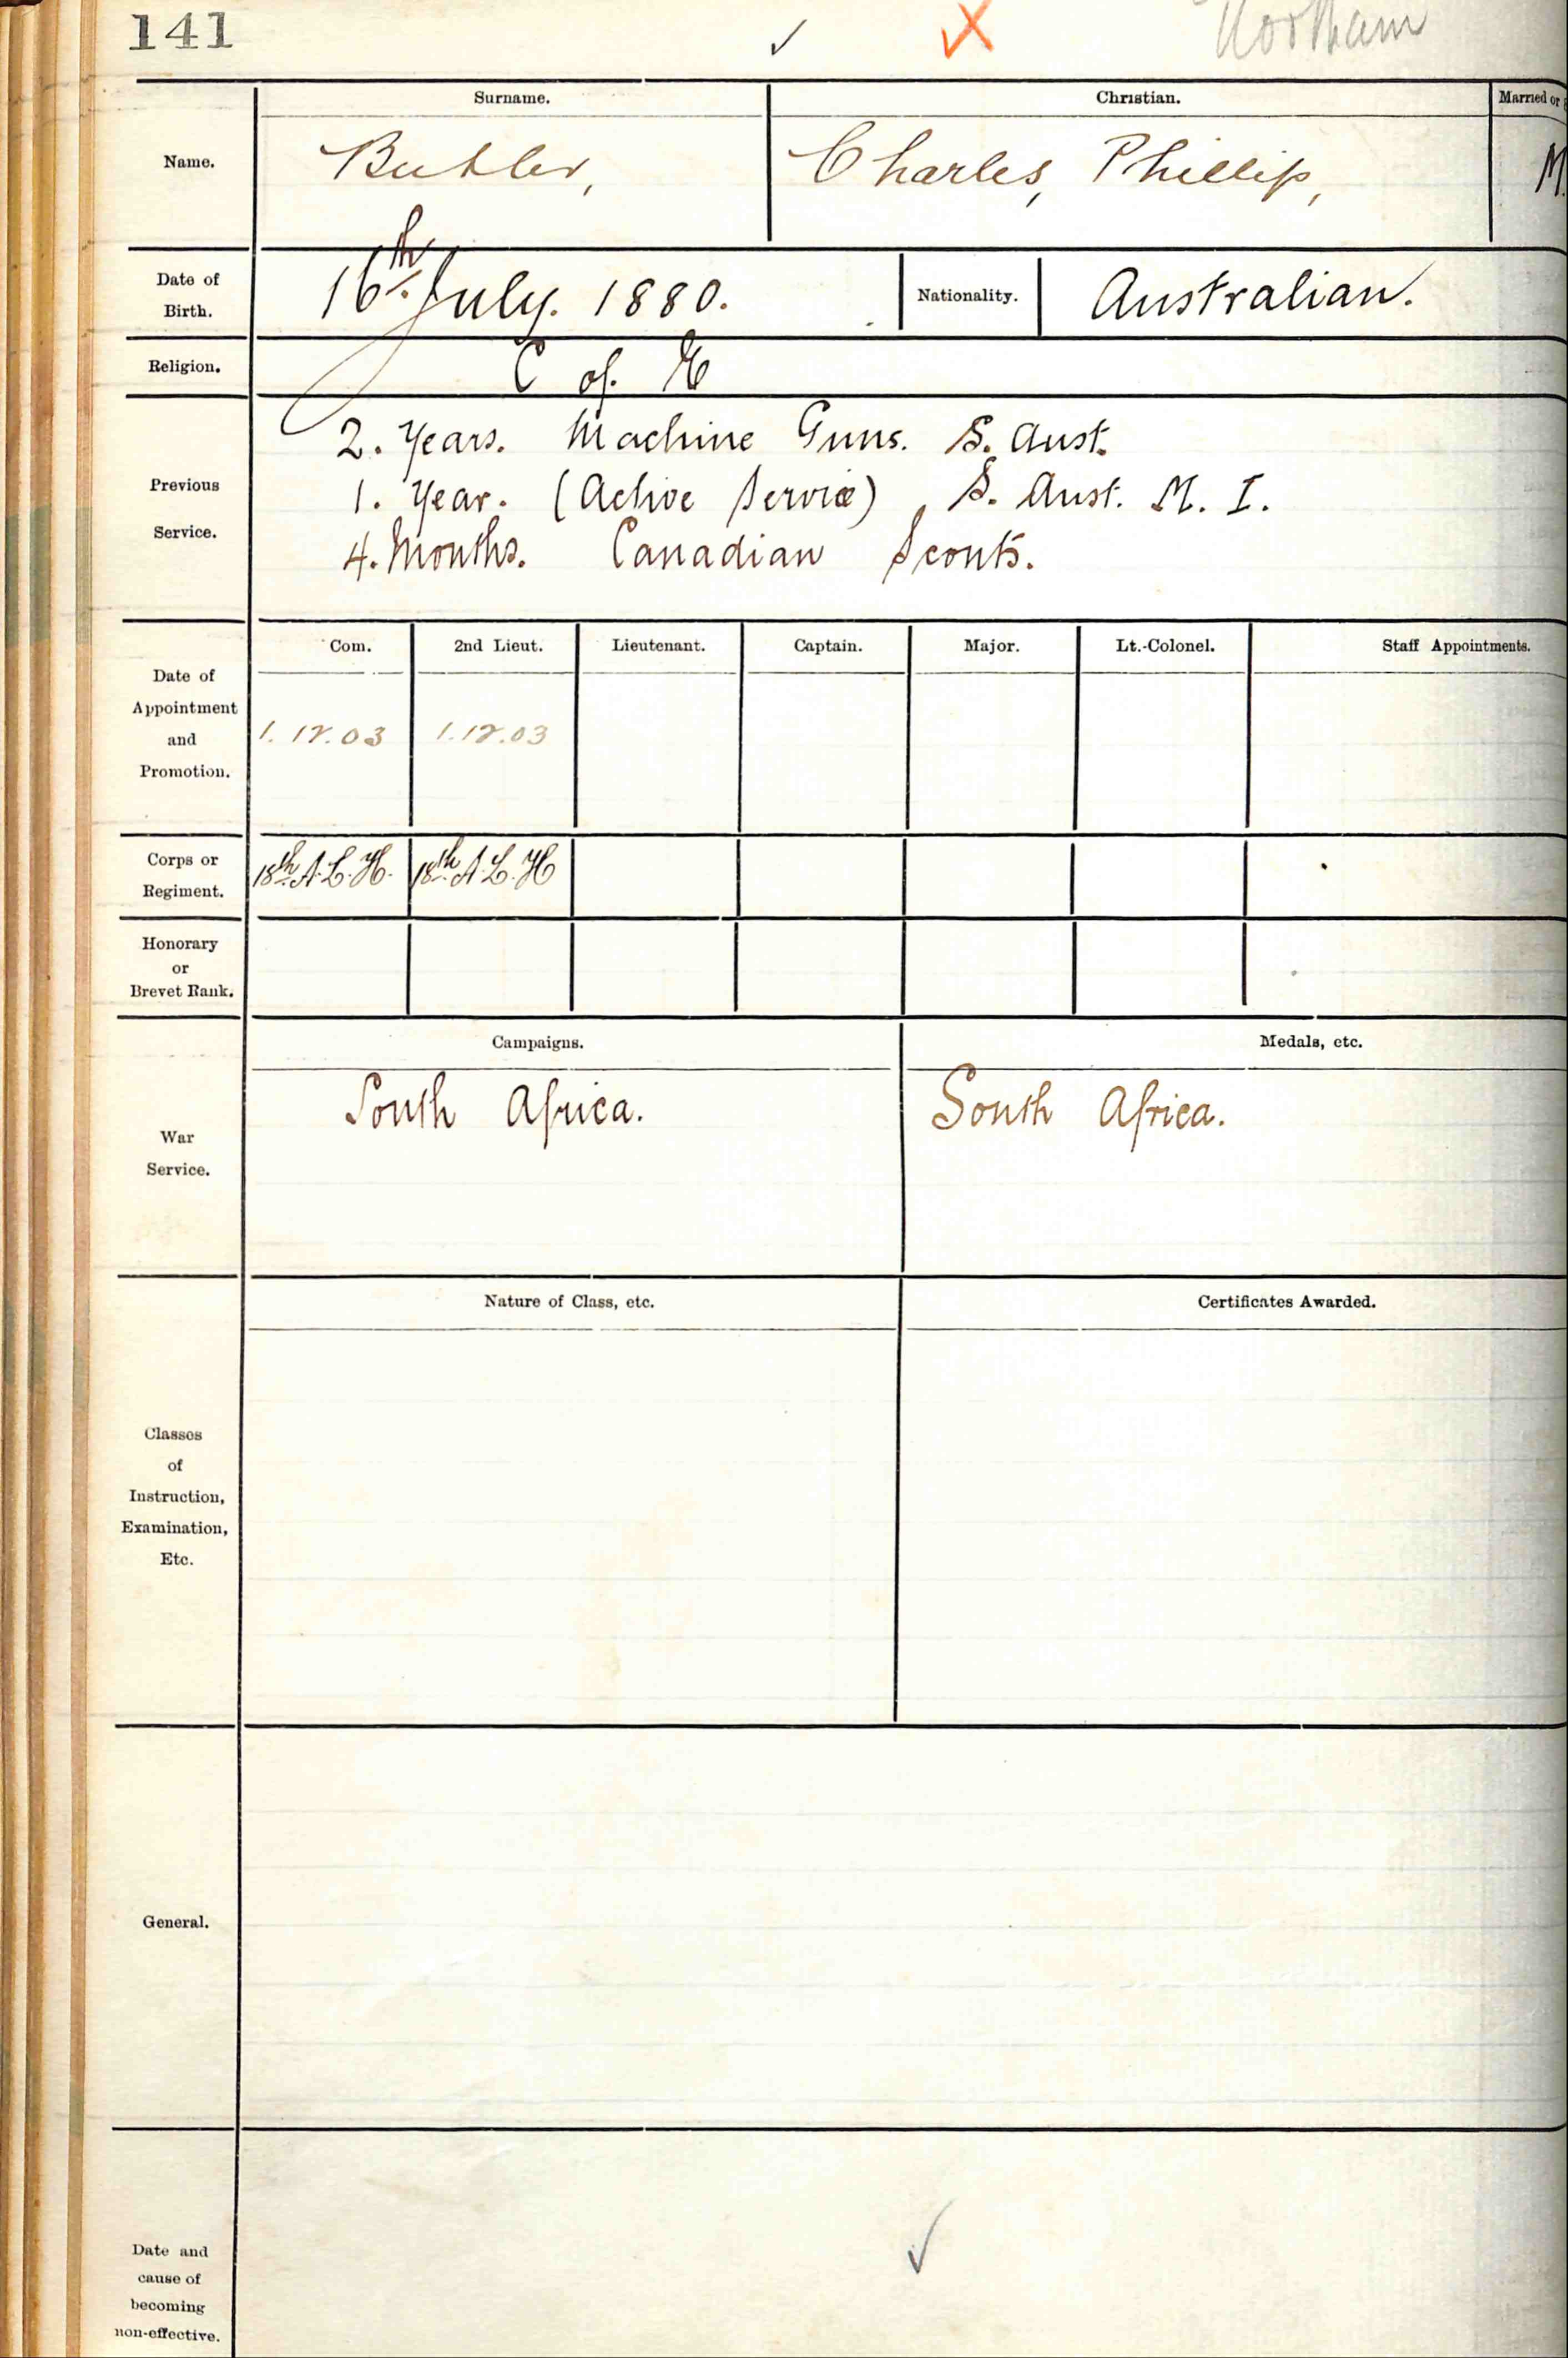 141
Surname. Christian. Married or
Name. Butler, Charles, Phillip, M.
Date of Birth. 16th July. 1880. Nationality. Australian.
Religion. C of. E
Previous Service.
2. Years. Machine Guns. S. Aust.
1. Year. (Active Service) S. Aust. M. I.
4. Months. Canadian Scouts.
Com. 2nd Lieut. Lieutenant. Captain. Major. Lt.-Colonel. Staff Appointments.
Date of Appointment and Promotion. 1.12.03 1.12.03
Corps or Regiment. 18th A. L. H. 18th A L. H
Honorary or Brevet Rank.
Campaigns. Medals, etc.
War Service. South Africa. South Africa.
Nature of Class, etc. Certificates Awarded.
Classes of Instruction, Examination, Etc.
General.
Date and cause of becoming non-effective.